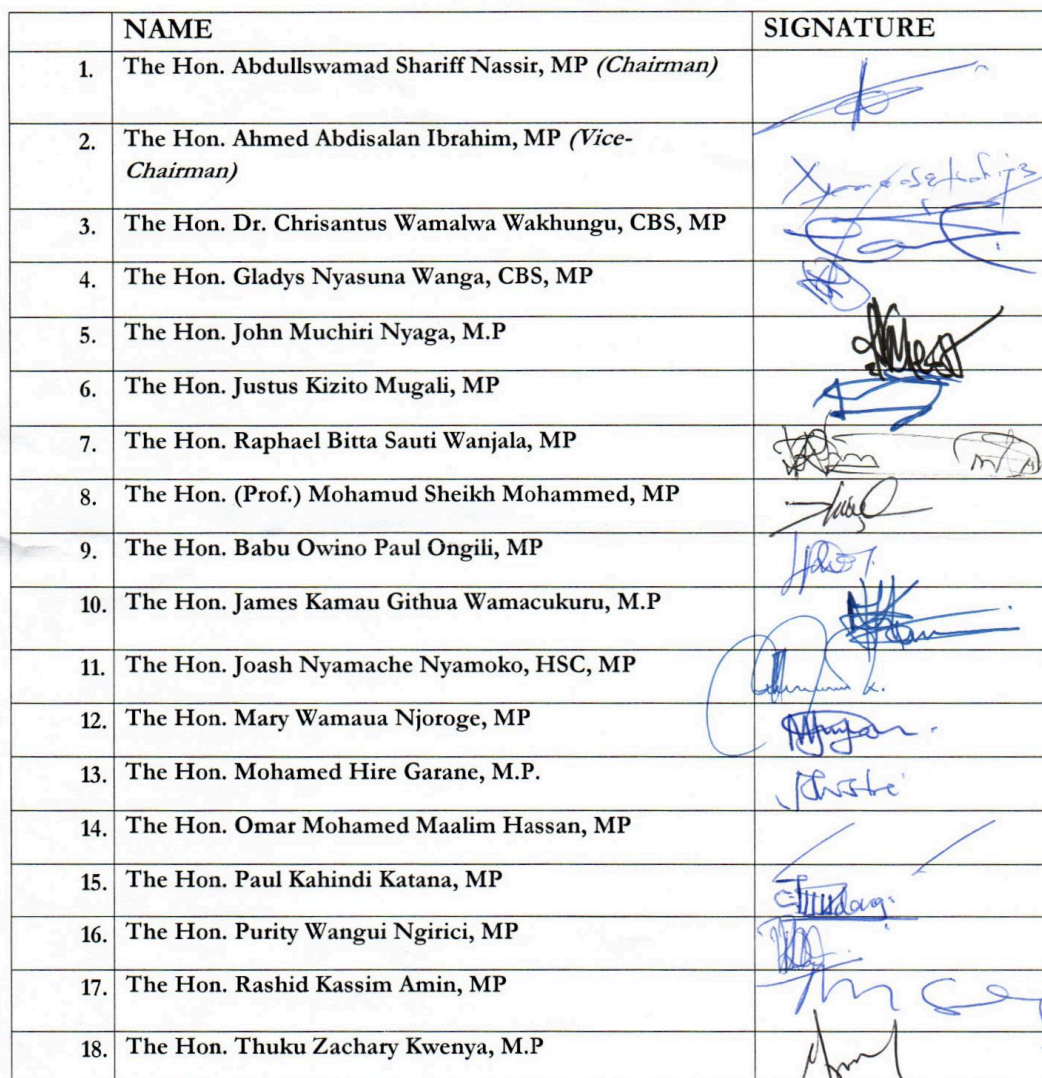 NAME SIGNATURE
1. The Hon. Abdullswamad Shariff Nassir, MP (Chairman)
2. The Hon. Ahmed Abdisalan Ibrahim, MP (Vice-
Chairman)
3. The Hon. Dr. Chrisantus Wamalwa Wakhungu, CBS, MP
4. The Hon. Gladys Nyasuna Wanga, CBS, MP
5. The Hon. John Muchiri Nyaga, M.P
6. The Hon. Justus Kizito Mugali, MP
7. The Hon. Raphael Bitta Sauti Wanjala, MP
8. The Hon. (Prof.) Mohamud Sheikh Mohammed, MP
9. The Hon. Babu Owino Paul Ongili, MP
10. The Hon. James Kamau Githua Wamacukuru, M.P
11. The Hon. Joash Nyamache Nyamoko, HSC, MP
12. The Hon. Mary Wamaua Njoroge, MP
13. The Hon. Mohamed Hire Garane, M.P.
14. The Hon. Omar Mohamed Maalim Hassan, MP
15. The Hon. Paul Kahindi Katana, MP
16. The Hon. Purity Wangui Ngirici, MP
17. The Hon. Rashid Kassim Amin, MP
18. The Hon. Thuku Zachary Kwenya, M.P